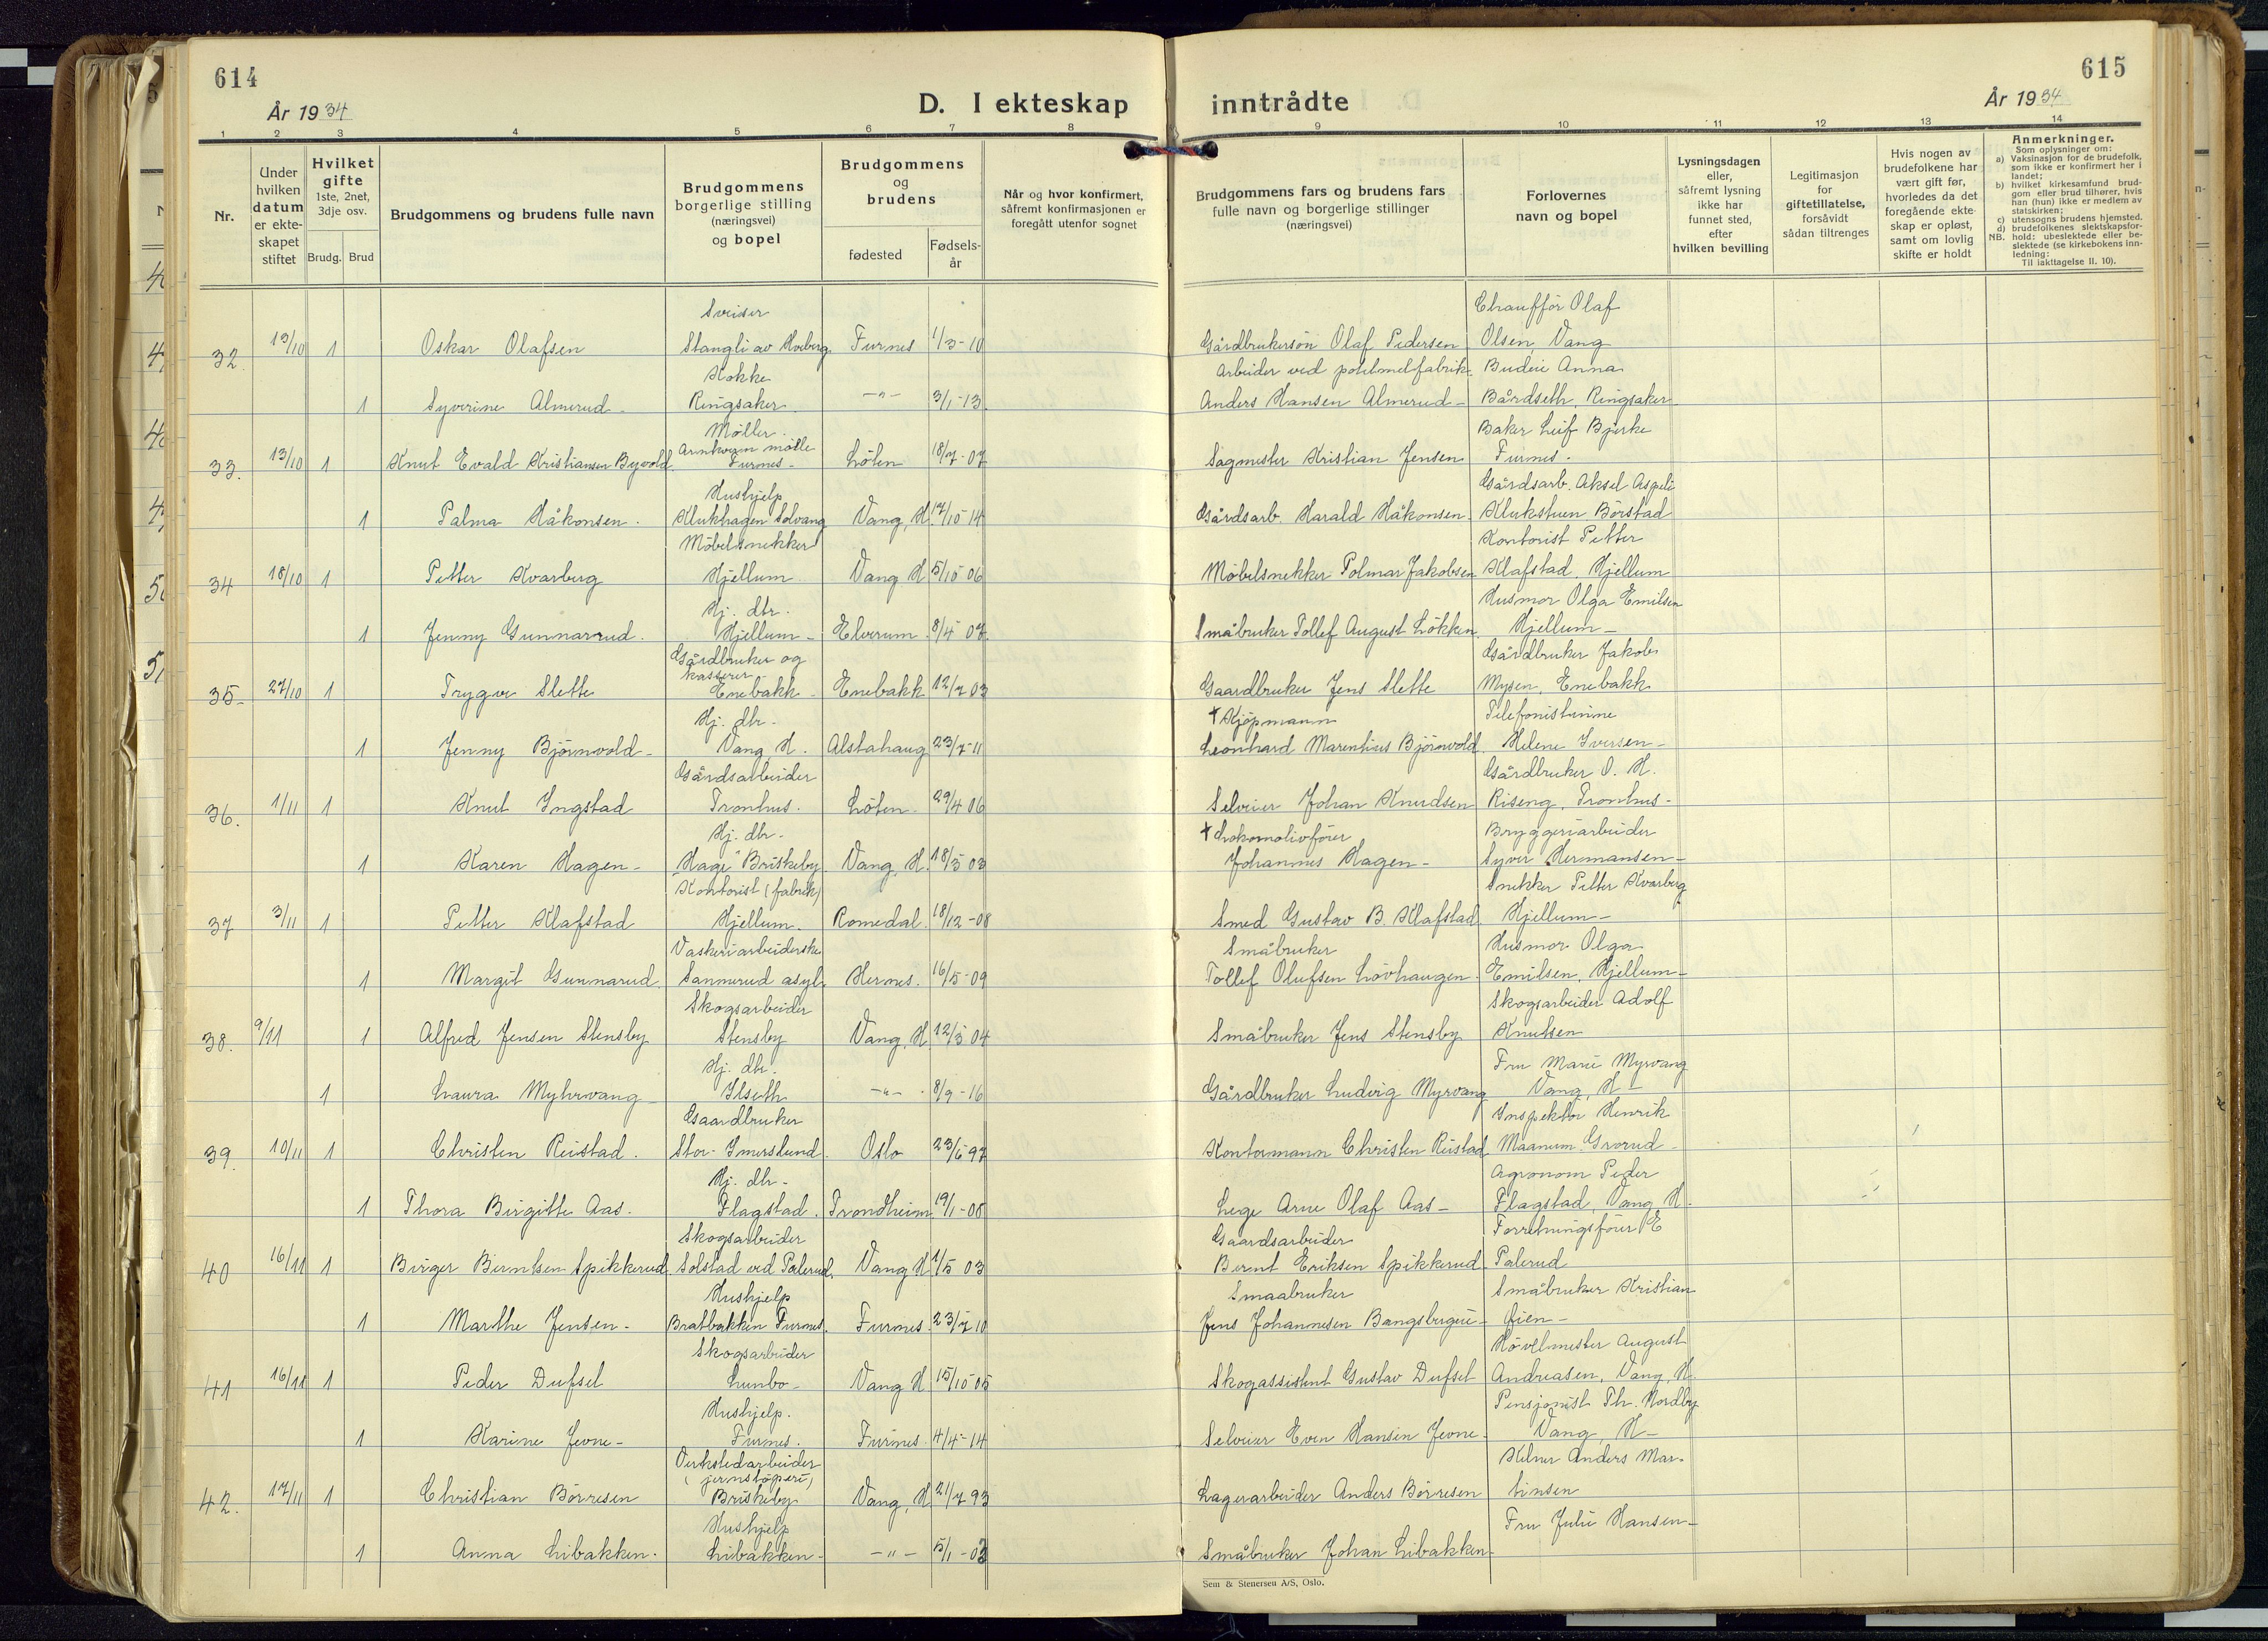 614
År 1934
D. I ekteskap
inntrådte
615
År 1934
1 2 3 4 5 6 7 8 9 10 11 12 13 14
Nr.
Under hvilken datum er ekte-skapet stiftet
Hvilket gifte 1ste, 2net, 3dje osv.
Brudg. Brud
Brudgommens og brudens fulle navn
Brudgommens borgerlige stilling (næringsvei) og bopel
Brudgommens og brudens
fødested
Fødsels-år
Når og hvor konfirmert, såfremt konfirmasjonen er foregått utenfor sognet
Brudgommens fars og brudens fars fulle navn og borgerlige stillinger (næringsvei)
Forlovernes navn og bopel
Lysningsdagen eller, såfremt lysning ikke har funnet sted, efter hvilken bevilling
Legitimasjon for giftetillatelse, forsåvidt sådan tiltrenges
Hvis nogen av brudefolkene har vært gift før, hvorledes da det foregående ekte-skap er opløst, samt om lovlig skifte er holdt
Anmerkninger.
Som oplysninger om:
a) Vaksinasjon for de brudefolk, som ikke er konfirmert her i landet;
b) hvilket kirkesamfund brud-gom eller brud tilhører, hvis han (hun) ikke er medlem av statskirken;
c) utensogns brudens hjemsted.
d) brudefolkenes slektskapsfor-hold: ubeslektede eller be-slektede (se kirkebokens inn-ledning:
NB.
Til iakttagelse II. 10).
Sveiser Chauffør Olaf
32 13/10 1 Oskar Olafsen Stangli av Hoberg Furnes 1/3-10 Gårdbrukersøn Olaf Pedersen Olsen Vang
Kokke Arbeider ved potetmelfabrik Budeie Anna
1 Syverine Almerud Ringsaker -"- 3/1-13 Anders Hansen Almerud Bårdseth, Ringsaker
Møller Baker Leif Bjerke
33. 13/10 1 Knut Evald Kristiansen Byvold Arnkvern mølle Furnes Løten 18/7-07 Sagmester Kristian Jensen Furnes.
Hushjelp Gårdsarb. Aksel Aspeli
1 Palma Håkonsen. Klukhagen Solvang Vang, H. 17/10-14 Gårdsarb. Harald Håkonsen Klukstuen Børstad
Møbelsnekker Kontorist Petter
34 18/10 1 Petter Kvarberg Hjellum Vang H 5/10 06 Møbelsnekker Polmar Jakobsen Klafstad, Hjellum
Hj. dtr. Husmor Olga Emilsen
1 Jenny Gunnarrud. Hjellum Elverum 8/4 07 Småbruker Tollef August Løkken Hjellum
Gårdbruker og kasserer Gårdbruker Jakob
35 27/10 1 Trygve Slette Enebakk Enebakk 12/7 03 Gaardbruker Jens Slette Mysen, Enebakk
Hj. dtr. † Kjøpmann Telefonistinne
1 Jenny Bjørnvold Vang H. Alstahaug 23/7-11 Leonhard Marentius Bjørnvold Helene Iversen
Gårdsarbeider Gårdbruker O. H.
36. 1/11 1 Knut Yngstad Tronhus. Løten 29/4 06 Selveier Johan Knudsen Riseng, Tronhus
Hj. dtr. † Lokomotivfører Bryggeriarbeider
1 Karen Hagen "Hagi" Briskeby Vang, H. 18/5 03 Johannes Hagen Syver Hermansen
Kontorist (fabrik) Snekker Petter Kvarberg
37 3/11 1 Petter Klafstad Hjellum. Romedal. 18/12-08 Smed Gustav B. Klafstad Hjellum
Vaskeriarbeiderske Småbruker Husmor Olga
1 Margit Gunnarud Sannerud asyl. Hernes. 16/5-09 Tollef Olufsen Løvhaugen Emilsen, Hjellum
Skogsarbeider Skogsarbeider Adolf
38. 9/11 1 Alfred Jensen Stensby Stensby Vang, H. 12/3 04 Småbruker Jens Stensby Knutsen
Hj. dtr. Fru Marie Myrvang
1 Laura Myhrvang Ilseth -"- 8/9-16 Gårdbruker Ludvig Myrvang Vang, H
Gaardbruker Inspektør Henrik
39. 10/11 1 Christen Reistad. Stor-Imerslund. Oslo 23/6 97 Kontormann Christen Reistad Maanum Grorud
Hj. dtr. Agronom Peder
1 Thora Birgitte Aas. Flagstad. Trondheim 19/1-08 Lege Arne Olaf Aas Flagstad, Vang, H.
Skogsarbeider Gaardsarbeider Forretningsfører E
40 16/11 1 Birger Berntsen Spikkerud Solstad ved Palerud. Vang H 1/5 03 Bernt Eriksen Spikkerud Palerud
Hushjelp Smaabruker Småbruker Kristian
1 Marthe Jensen. Bratbakken Furnes. Furnes. 23/7 10 Jens Johannesen Bangsbergeie Lien
Skogsarbeider Høvelmester August
41 16/11 1 Peder Dufset Lunbo Vang H 15/10 05 Skogassistent Gustav Dufset Andreasen, Vang, H.
Hushjelp. Pensjonist Th. Nordby
1 Karine Jevne Furnes. Furnes. 4/4-14 Selveier Even Hansen Jevne. Vang, H
Verkstedarbeider (jernstøperi) Kelner Anders Mar-
42. 17/11 1 Christian Børresen Briskeby Vang, H. 21/7 93 Lagerarbeider Anders Børresen tinsen
Hushjelp Fru Julie Hansen
1 Anna Libakken. Libakken -"- 5/1-03 Småbruker Johan Libakken
Sem & Stenersen A/S, Oslo.